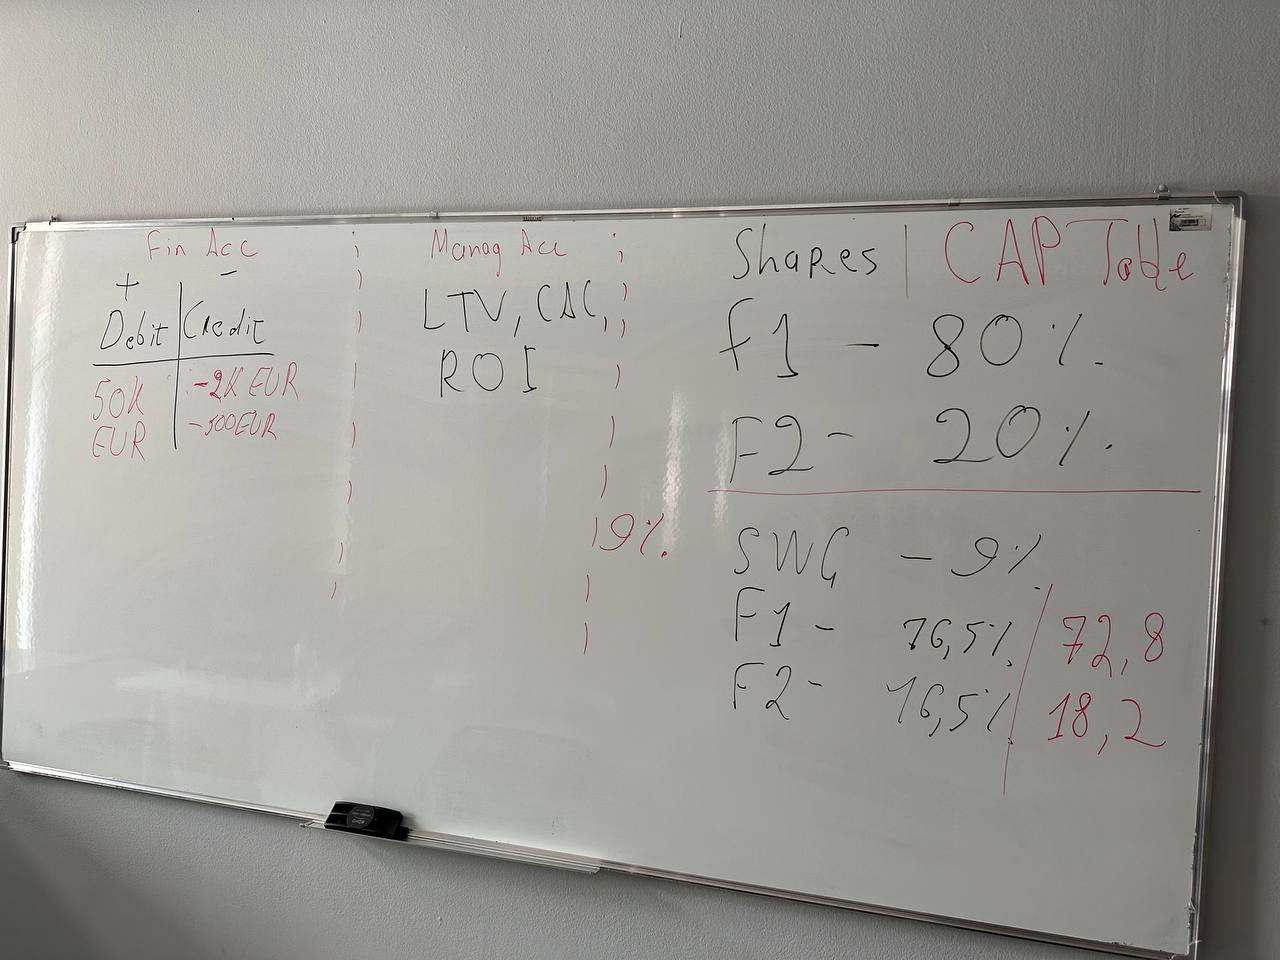 Fin Acc
+ -
Debit | Credit
50K
EUR
-2K EUR
-500EUR
Manag Acc
LTV, CAC,
ROI
Shares | CAP Table
F1 - 80%
F2 - 20%
9%
SWG - 9%
F1 - 76,5% / 72,8
F2 - 16,5% / 18,2